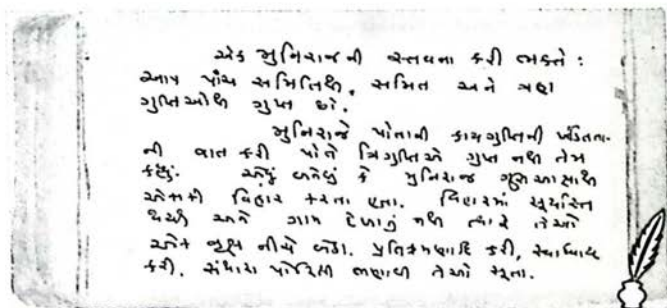 એક મુનિરાજની સ્તવના કરી ભક્તે :
આપ પાંચ સમિતિથી, સમિત અને ત્રણ
ગુપ્તિઓથી ગુપ્ત છો.
મુનિરાજે પોતાની કાયગુપ્તિની ખંડિતતા-
ની વાત કરી પોતે ત્રિગુપ્તિએ ગુપ્ત નથી તેમ
કહ્યું. એવું બનેલું કે મુનિરાજ ગુરુઆજ્ઞાથી
એકાકી વિહાર કરતા હતા. વિહારમાં સૂર્યાસ્ત
થયો અને ગામ દેખાતું નથી ત્યારે તેઓ
એક વૃક્ષ નીચે બેઠા. પ્રતિક્રમણાદિ કરી, સ્વાધ્યાય
કરી, સંથારા પોરિસી ભણાવી તેઓ સૂતા.